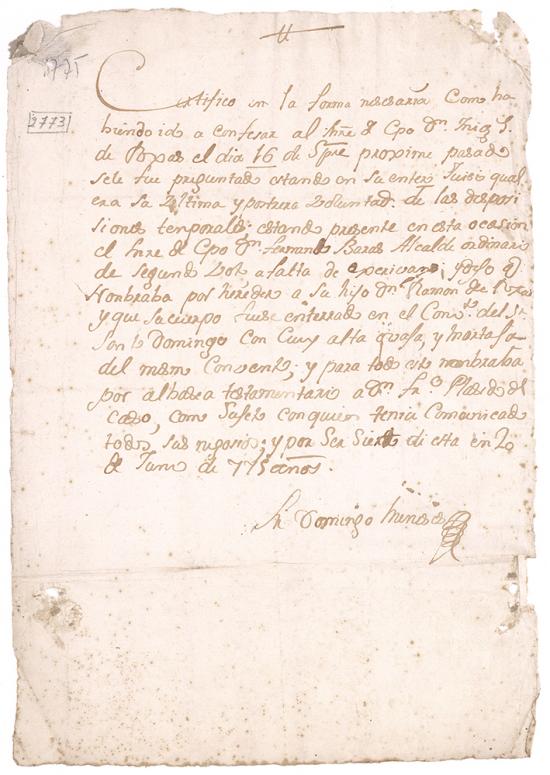 1775
2773
Certifico en la forma necesaria como ha
biendo ido a confesar al
de Roxas el dia 16 de Spre proximo pasado
sele fue preguntado estando en su entero Juisio qual
era su Ultima y postrera Voluntad de las disposi
siones temporales estando presente en esta ocasion
el de Cpo Dn Fernando Bazas Alcalde ordinario
de segundo Voto a falta de y dijo q
Nombraba por heredero a su hijo Dn Ramon de Roxas
y que su cuerpo fuese enterrado en el Convto del Sr
Santo Domingo con Cruz alta y mortaja
del mismo Convento; y para todo esto nombraba
por albacea testamentario a Dn Frco del
como Sujeto con quien tenia Comunicado
todos sus negosios; y por Ser Sierto di esta en 20
de Junio de 775 años.
Fr Domingo Meneses